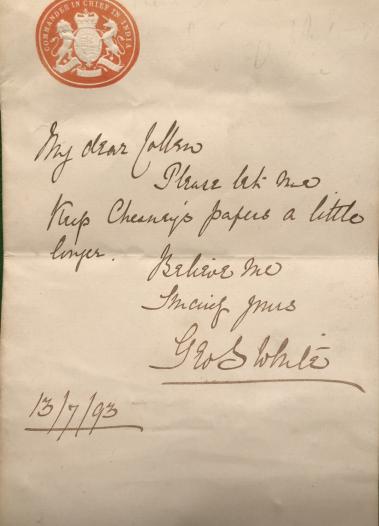 COMMANDER IN CHIEF IN INDIA
My dear Collen
Please let me
Keep Chesney's papers a little
longer.
Believe me
Sincerely yours
Geo S White
13/7/93